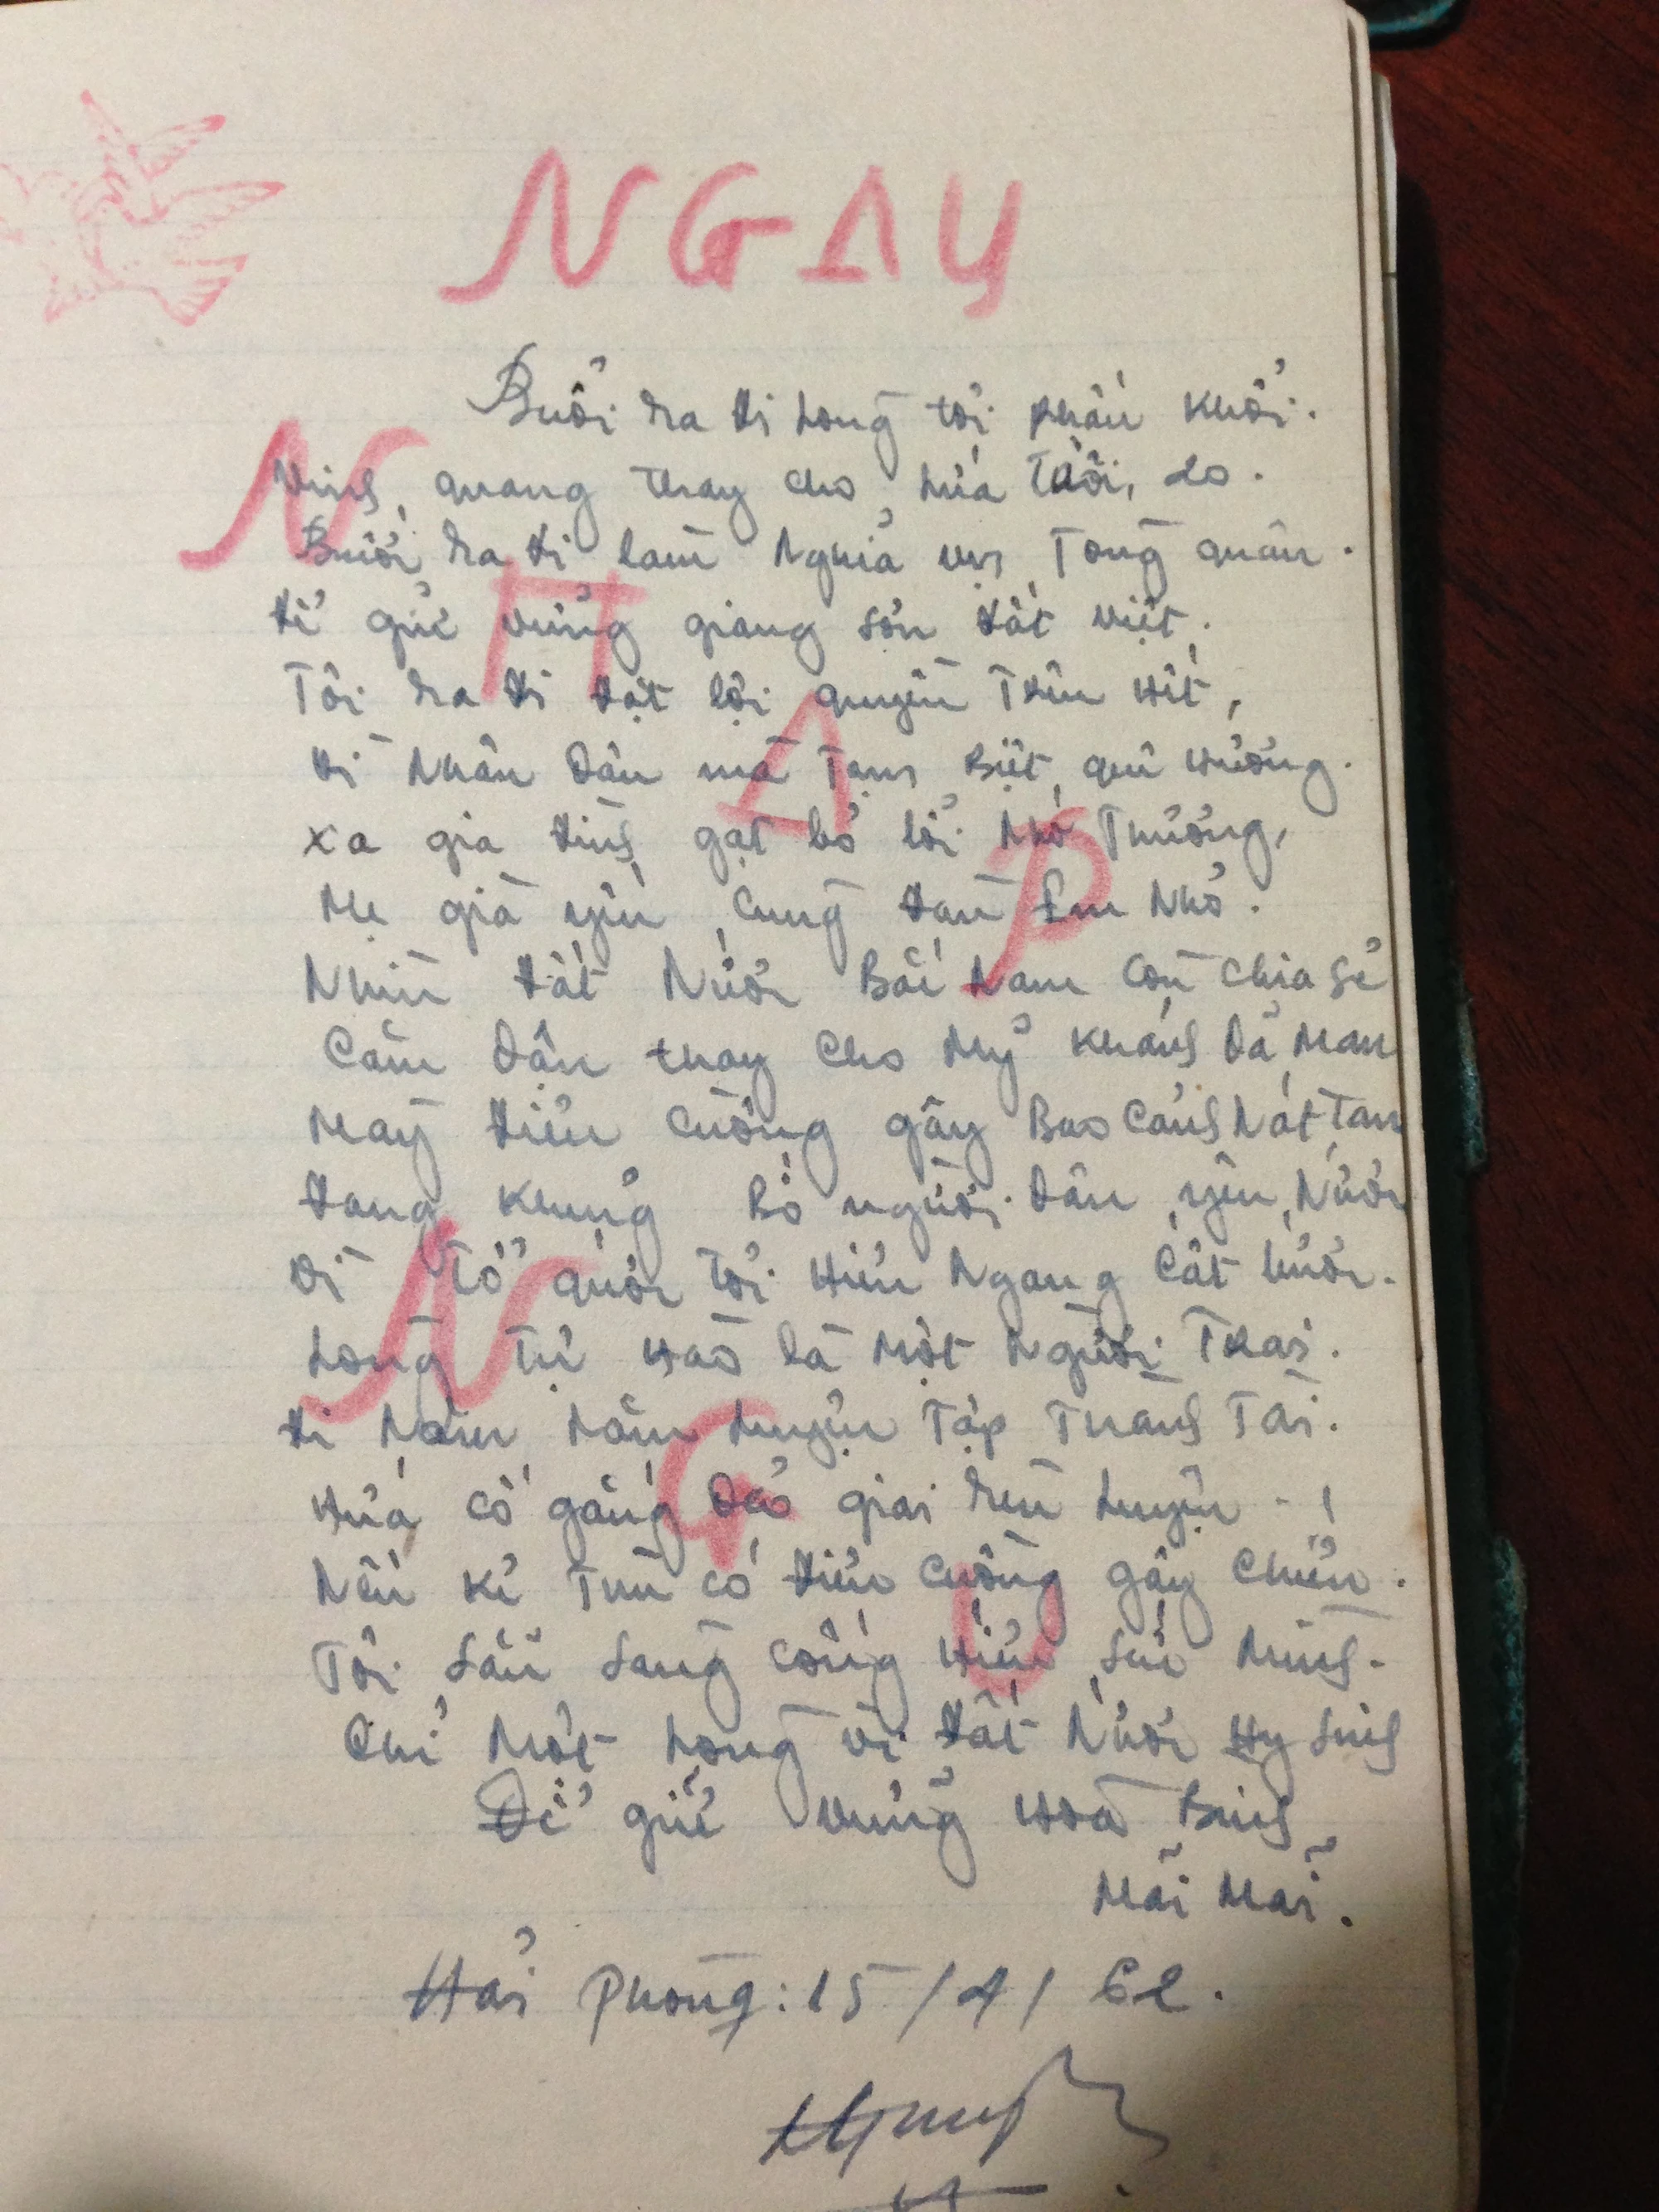 NGAY
Buổi ra đi lòng tôi phấn khởi.
Vinh quang thay cho lứa tuổi 20.
Buổi ra đi làm Nghĩa vụ Tòng quân.
để giữ vững giang sơn đất việt.
Tôi ra đi đặt lợi quyền Trên Hết,
Vì Nhân Dân mà Tạm Biệt quê Hương.
xa gia đình gạt bỏ lời Nhớ Thương,
Mẹ già yếu cùng đàn Em Nhỏ.
Nhìn đất Nước Bắc Nam Còn Chia sẻ
Căm Dận thay Cho Mỹ Khánh Dã Man
Mày điên Cuồng gây Bao Cảnh Nát Tan
đang Khủng Bố người Dân yêu Nước
Vì Tổ quốc Tôi Hiên Ngang Cất bước.
Lòng Tự Hào là Một Người Trai.
đi Năm Luyện Tập Thành Tài.
Hứa Cố gắng Dẻo giai Rèn Luyện - !
Nếu Kẻ Thù Có điên Cuồng gây Chiến.
Tôi Sẵn Sàng Cống Hiến Mình.
Chỉ Một Lòng Vì đất Nước Hy Sinh
Để giữ Vững Hoà Bình
Mãi Mãi.
Hải Phòng: 15/4/62.
N
T
A
P
N
G
U